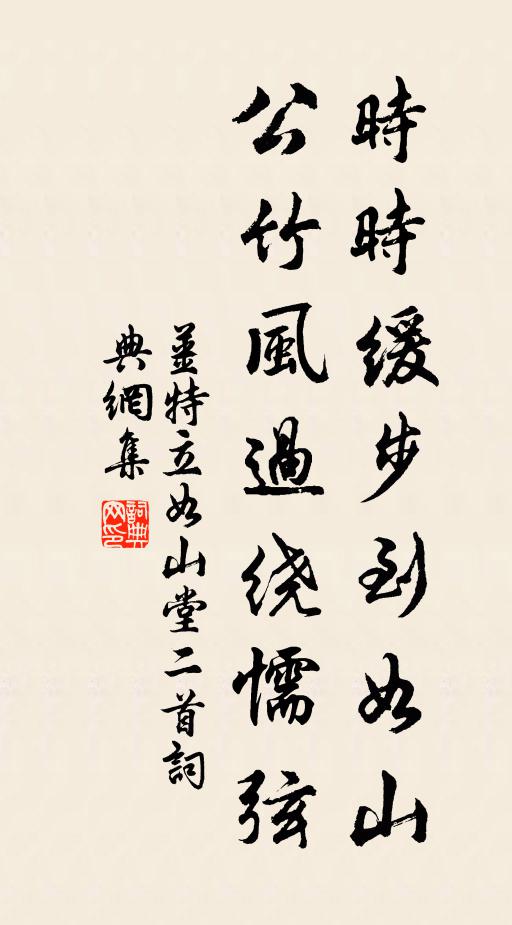 時時緩步到如山
公竹風過绕懦弦
姜特立如山堂二首詞
典網集
詞典网印